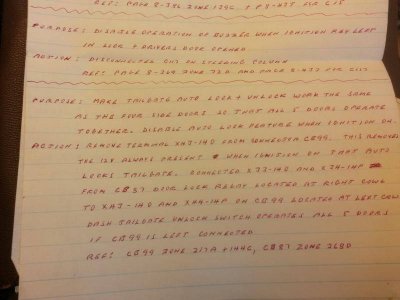 REF: PAGE 8-396 ZONE 139C + P 8-435 FOR C18
PURPOSE: DISABLE OPERATION OF BUZZER WHEN IGNITION KEY LEFT
IN LOCK + DRIVERS DOOR OPENED
ACTION: DISCONNECTED C117 ON STEERING COLUMN
REF: PAGE 8-369 ZONE 72D AND PAGE 8-437 FOR C117
PURPOSE: MAKE TAILGATE AUTO LOCK + UNLOCK WORK THE SAME
AS THE FOUR SIDE DOORS SO THAT ALL 5 DOORS OPERATE
TOGETHER. DISABLE AUTO LOCK FEATURE WHEN IGNITION ON.
ACTION: REMOVE TERMINAL XH3-14D FROM CONNECTOR CB99. THIS REMOVES
THE 12V ALWAYS PRESENT WHEN IGNITION ON THAT AUTO
LOCKS TAILGATE. CONNECTED X33-14G AND X34-14P
FROM CB37 DOOR LOCK RELAY LOCATED AT RIGHT COWL
TO XH3-14D AND XH4-14P ON CB99 LOCATED AT LEFT COWL
DASH TAILGATE UNLOCK SWITCH OPERATES ALL 5 DOORS
IF CB99 IS LEFT CONNECTED
REF: CB99 ZONE 217A + 144C, CB37 ZONE 268D